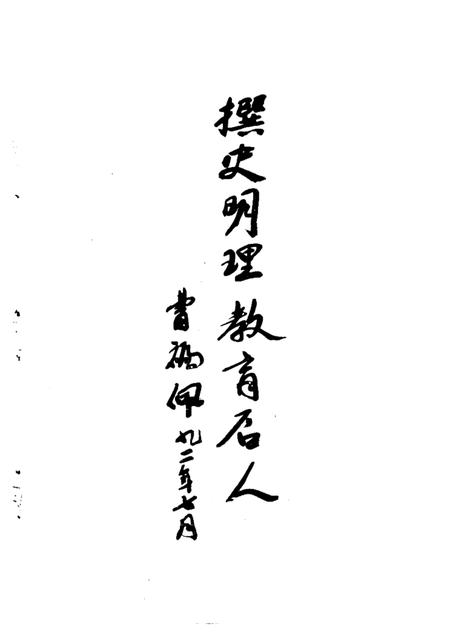 撰史明理教育后人
曹福佩九二年七月